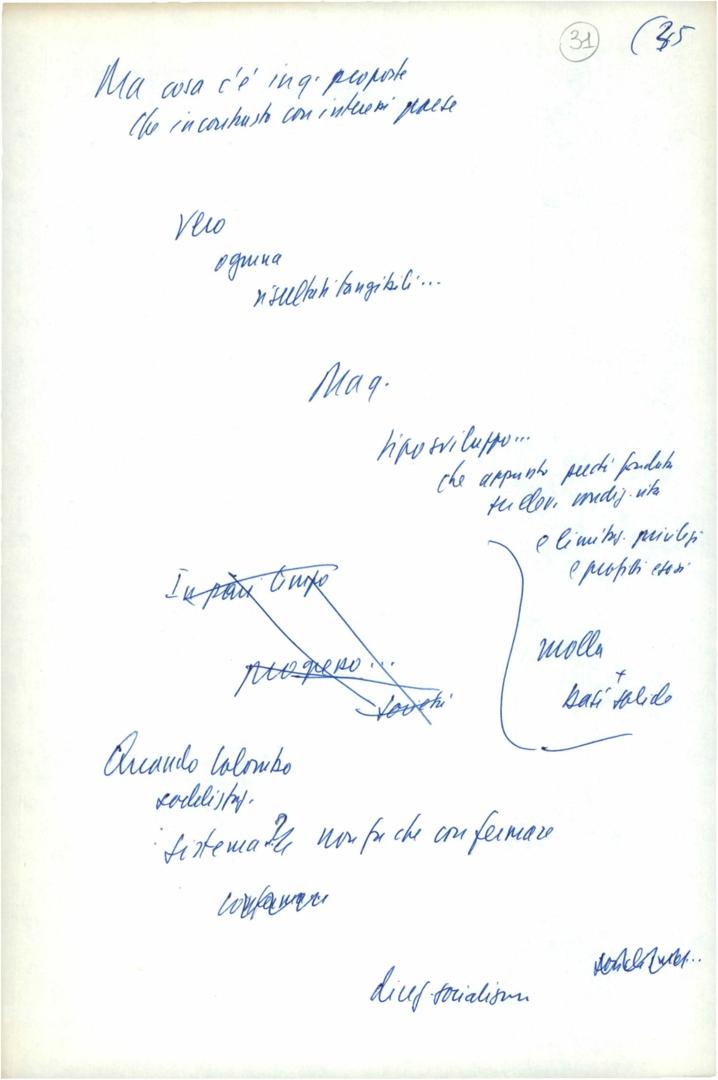 31 (35
Ma cosa c'è in q. proposte
che in contrasto con interessi paese
Vero
ognuna
risultati tangibili...
Ma q.
tipo sviluppo...
che appunto perché fondato
su elev. condiz. vita
e limitaz. privilegi
e profitti esosi
molla
In pari tempo
progresso...
+
basi solide
Quando Colombo
soddisfaz.
sistema non fa che confermare
confermare
socialismo